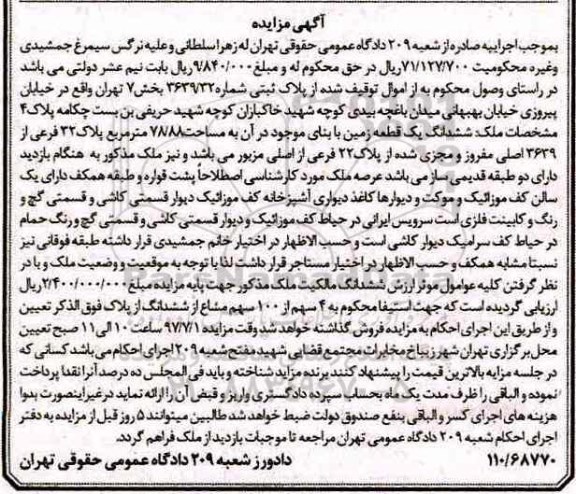 آگهی مزایده
بموجب اجراییه صادره از شعبه ۲۰۹ دادگاه عمومی حقوقی تهران له زهرا سلطانی و علیه نرگس سیمرغ جمشیدی
وغیره محکومیت ۷۱/۱۲۷/۷۰۰ریال در حق محکوم له و مبلغ ۹/۸۴۰/۰۰۰ریال بابت نیم عشر دولتی می باشد
در راستای وصول محکوم به از اموال توقیف شده از پلاک ثبتی شماره ۳۶۳۹/۳۲ بخش۷ تهران واقع در خیابان
پیروزی خیابان بهبهانی میدان باغچه بیدی کوچه شهید خاکباران کوچه شهید حریفی بن بست چکامه پلاک۴
مشخصات ملک: ششدانگ یک قطعه زمین با بنای موجود در آن به مساحت۷۸/۸۸ مترمربع پلاک ۳۲ فرعی از
۳۶۳۹ اصلی مفروز و مجزی شده از پلاک۲۲ فرعی از اصلی مزبور می باشد و نیز ملک مذکور به هنگام بازدید
دارای دو طبقه قدیمی ساز می باشد عرصه ملک مورد کارشناسی اصطلاحاً پشت قواره و طبقه همکف دارای یک
سالن کف موزائیک و موکت و دیوارها کاغذ دیواری آشپزخانه کف موزائیک دیوار قسمتی کاشی و قسمتی گچ و
رنگ و کابینت فلزی است سرویس ایرانی در حیاط کف موزائیک و دیوار قسمتی کاشی و قسمتی گچ و رنگ حمام
در حیاط کف سرامیک دیوار کاشی است و حسب الاظهار در اختیار خانم جمشیدی قرار داشته طبقه فوقانی نیز
نسبتا مشابه همکف و حسب الاظهار در اختیار مستاجر قرار داشت لذا با توجه به موقعیت و وضعیت ملک و با در
نظر گرفتن کلیه عوامل موثر ارزش ششدانگ مالکیت ملک مذکور جهت پایه مزایده مبلغ ۲/۴۰۰/۰۰۰/۰۰۰ریال
ارزیابی گردیده است که جهت استیفا محکوم به ۴ سهم از ۱۰۰ سهم مشاع از ششدانگ از پلاک فوق الذکر تعیین
و از طریق این اجرای احکام به مزایده فروش گذاشته خواهد شد وقت مزایده ۹۷/۷/۱ ساعت ۱۰ الی ۱۱ صبح تعیین
محل برگزاری تهران شهرزیباخ مخابرات مجتمع قضایی شهید مفتح شعبه ۲۰۹ اجرای احکام می باشد کسانی که
در جلسه مزایه بالاترین قیمت را پیشنهاد کنند برنده مزاید شناخته و باید فی المجلس ده درصد آنرا نقدا پرداخت
نموده و الباقی را ظرف مدت یک ماه بحساب سپرده دادگستری واریز و قبض آن را ارائه نماید در غیراینصورت بدوا
هزینه های اجرای کسر و الباقی بنفع صندوق دولت ضبط خواهد شد طالبین میتوانند ۵ روز قبل از مزایده به دفتر
اجرای احکام شعبه ۲۰۹ دادگاه عمومی تهران مراجعه تا موجبات بازدید از ملک فراهم گردد.
۱۱۰/۶۸۷۷۰ دادورز شعبه ۲۰۹ دادگاه عمومی حقوقی تهران